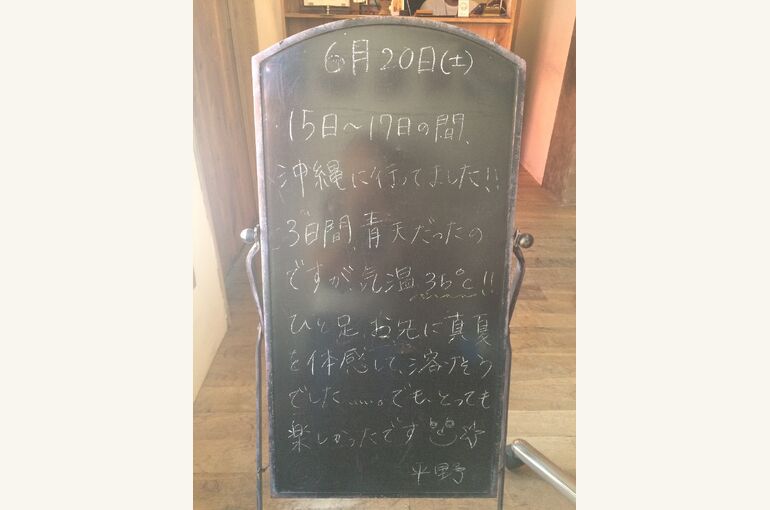 6月20日(土)
15日～17日の間、
沖縄に行ってました!!
3日間、青天だったの
ですが、気温35℃!!
ひと足、お先に真夏
を体感して、溶けそう
でした……。でも、とっても
楽しかったです
平野